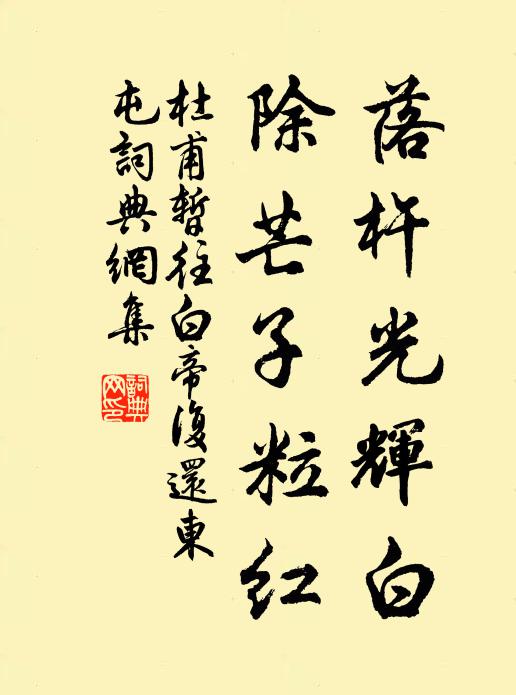 落杵光輝白
除芒子粒紅
杜甫暫往白帝復還東
屯詞典網集
詞典
网印